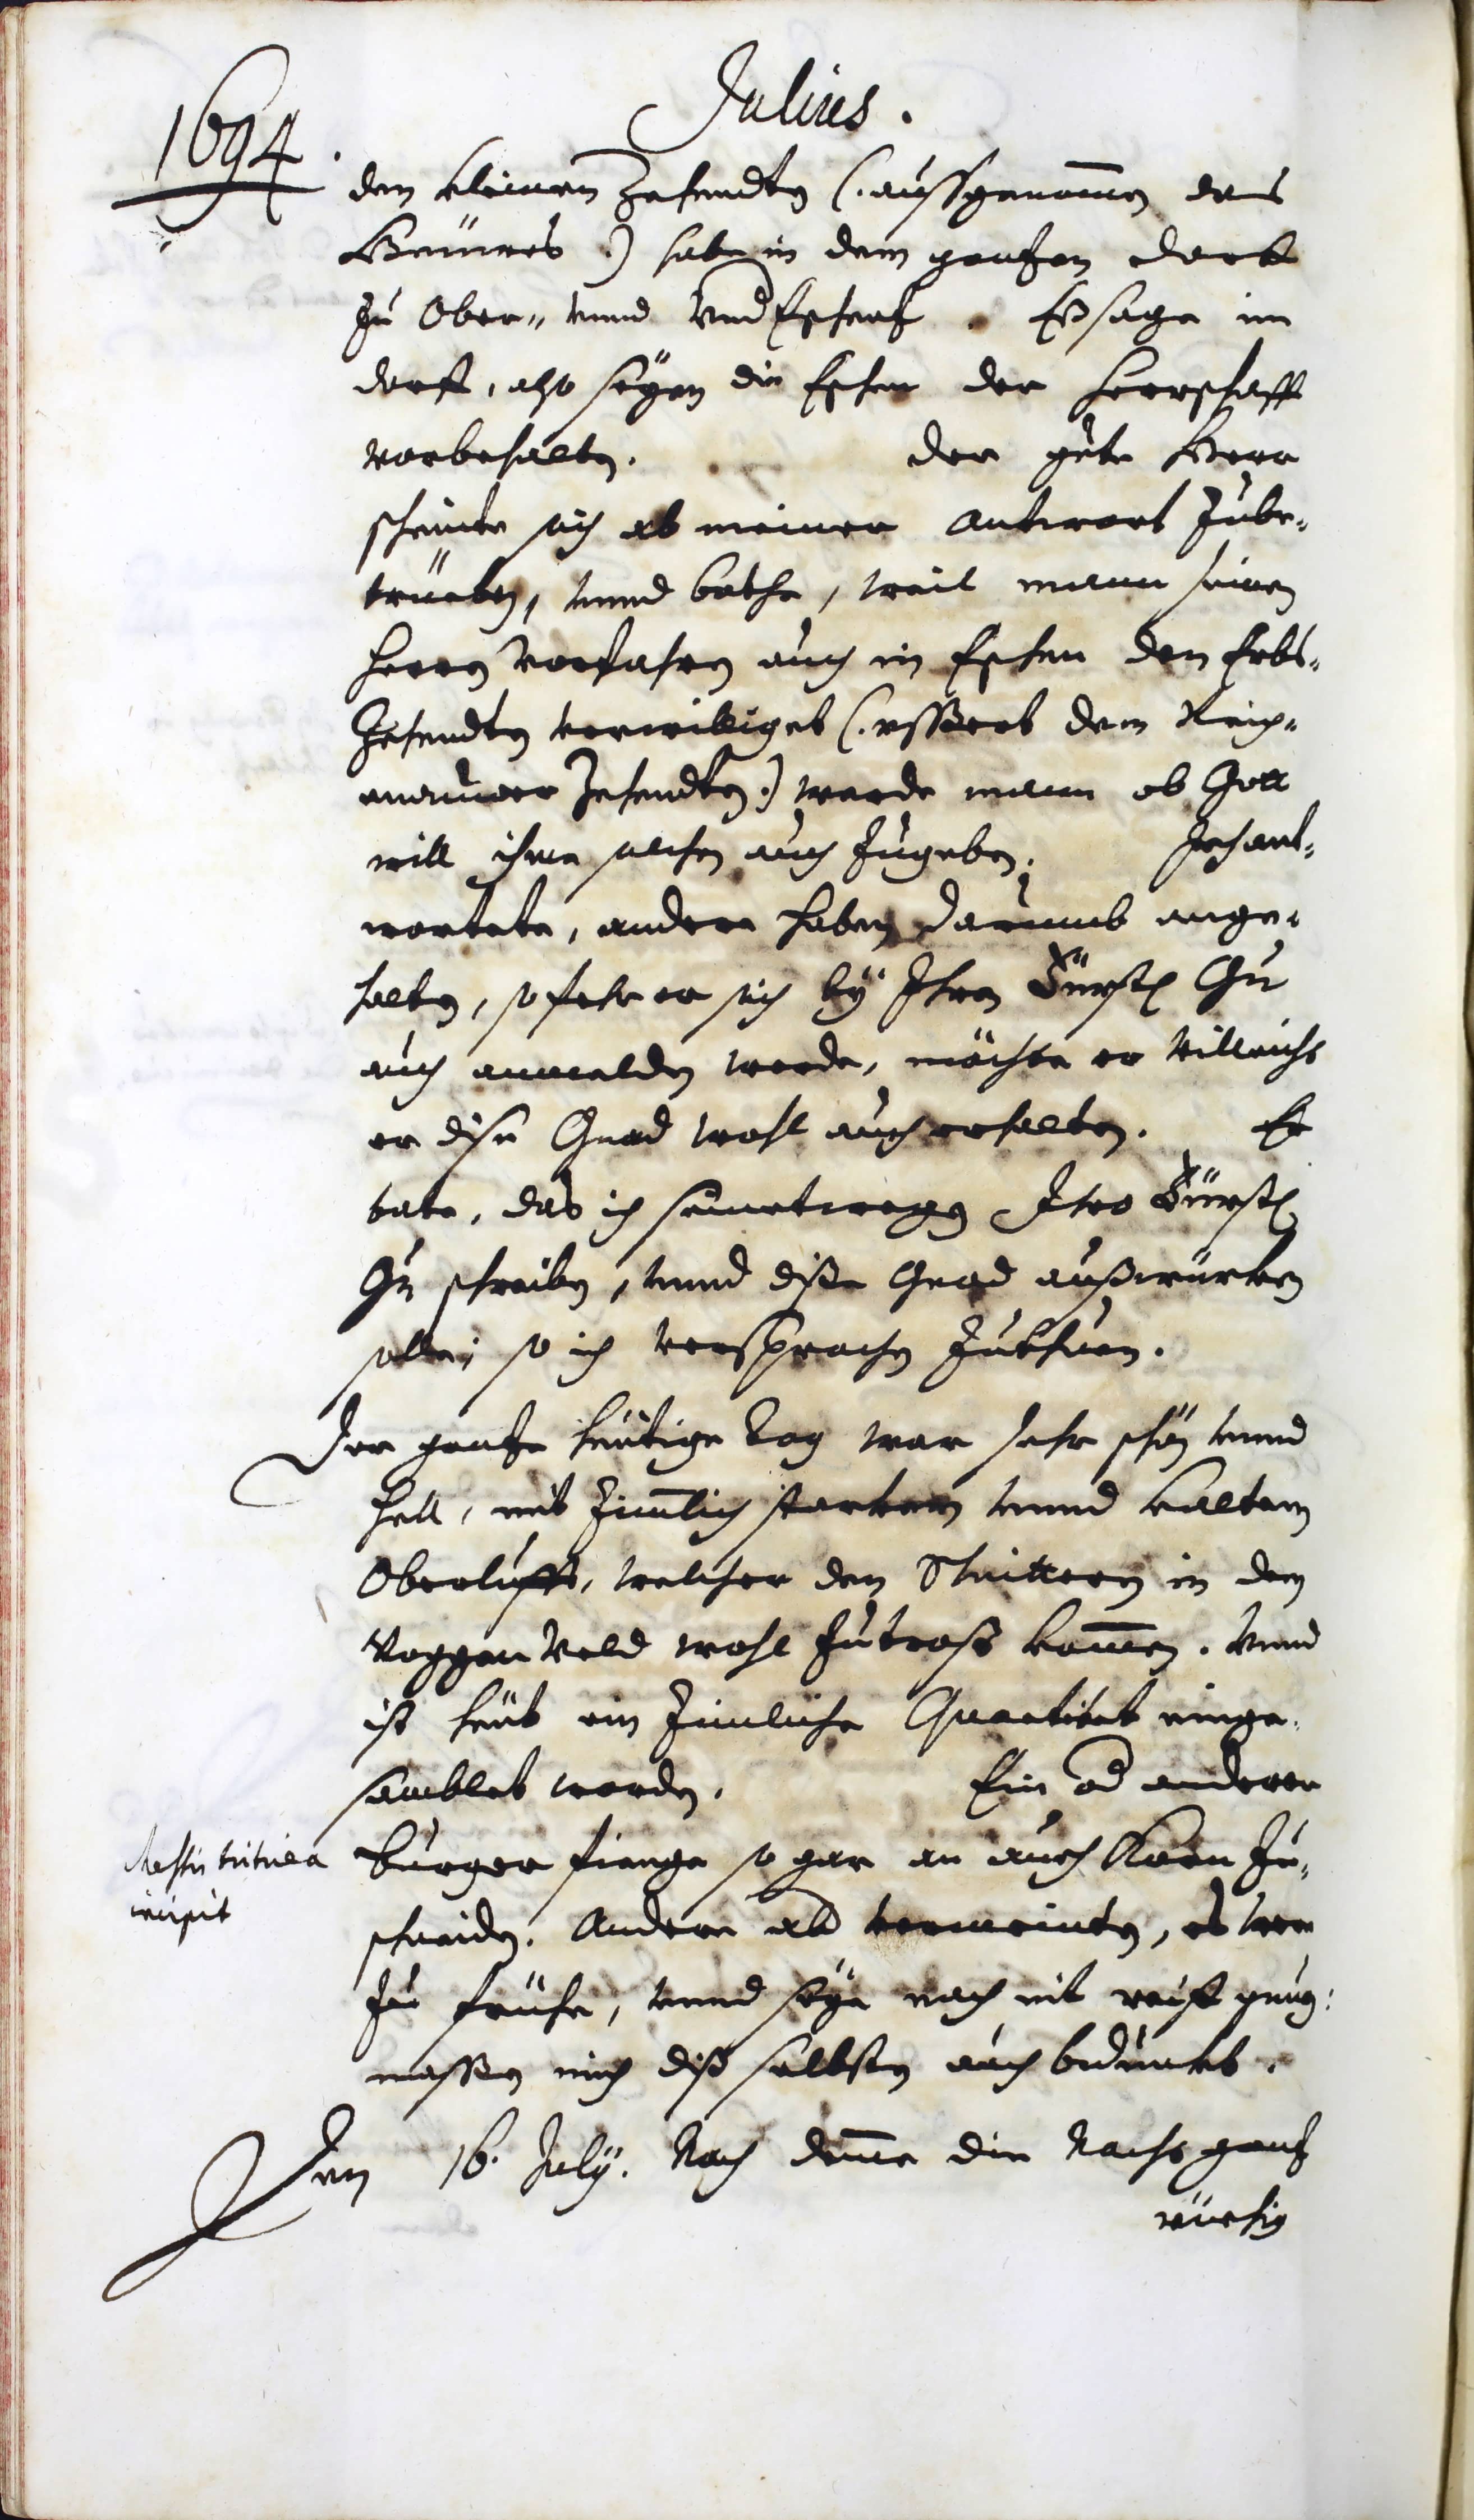 Julius.
1694.
den kleinen Zehendten (. aussgenommen des
Weines .) habe in dem gantzen dorf
zu Ober- unnd Undter Eschentz. Eschentz im
dorff, also seyen die Eschen der Herrschafft
vorbehalten. Der gute Herr
scheinte sich ab meiner Antwort zube-
trüeben, unnd bathe, weil mann seinen
Herren Vorfahren auch in Eschen den Erbs-
Zehendten verwilliget (. ussert dem
Zehendten .) werde mann ob Gott
will ihme solchen auch zugeben. Ich ant-
wortete, andere haben darumb ange-
halten, so fehr er sich by Ihro Fürstl Gn
auch anmelden werde, möchte er villeicht
er dise Gnad wohl auch erhalten. Er
bate, das ich seinetwegen Ihro Fürstl
Gn schreiben, unnd dise Gnad außwürken
solle; so ich versprochen zuthuen.
Der gantze heütige Tag war sehr schön unnd
hell, mit zimmlich starkem unnd kaltem
Oberlufft, welcher den Schnitteren in dem
Roggen Veld wohl zutrost kommen. Unnd
ist heüt ein zimliche Quantitet einge-
samblet worden. Ein od anderer
Burger fienge so gar an auch Korn zu-
schneiden. Andere ab vermeinten, es were
zu frühe, unnd seye noch nit reiff gnug:
massen mich diß selbsten auch bedunkt.
Messis triticea
incipit
Den 16. July. Nach deme die Nacht gantz
rüehig